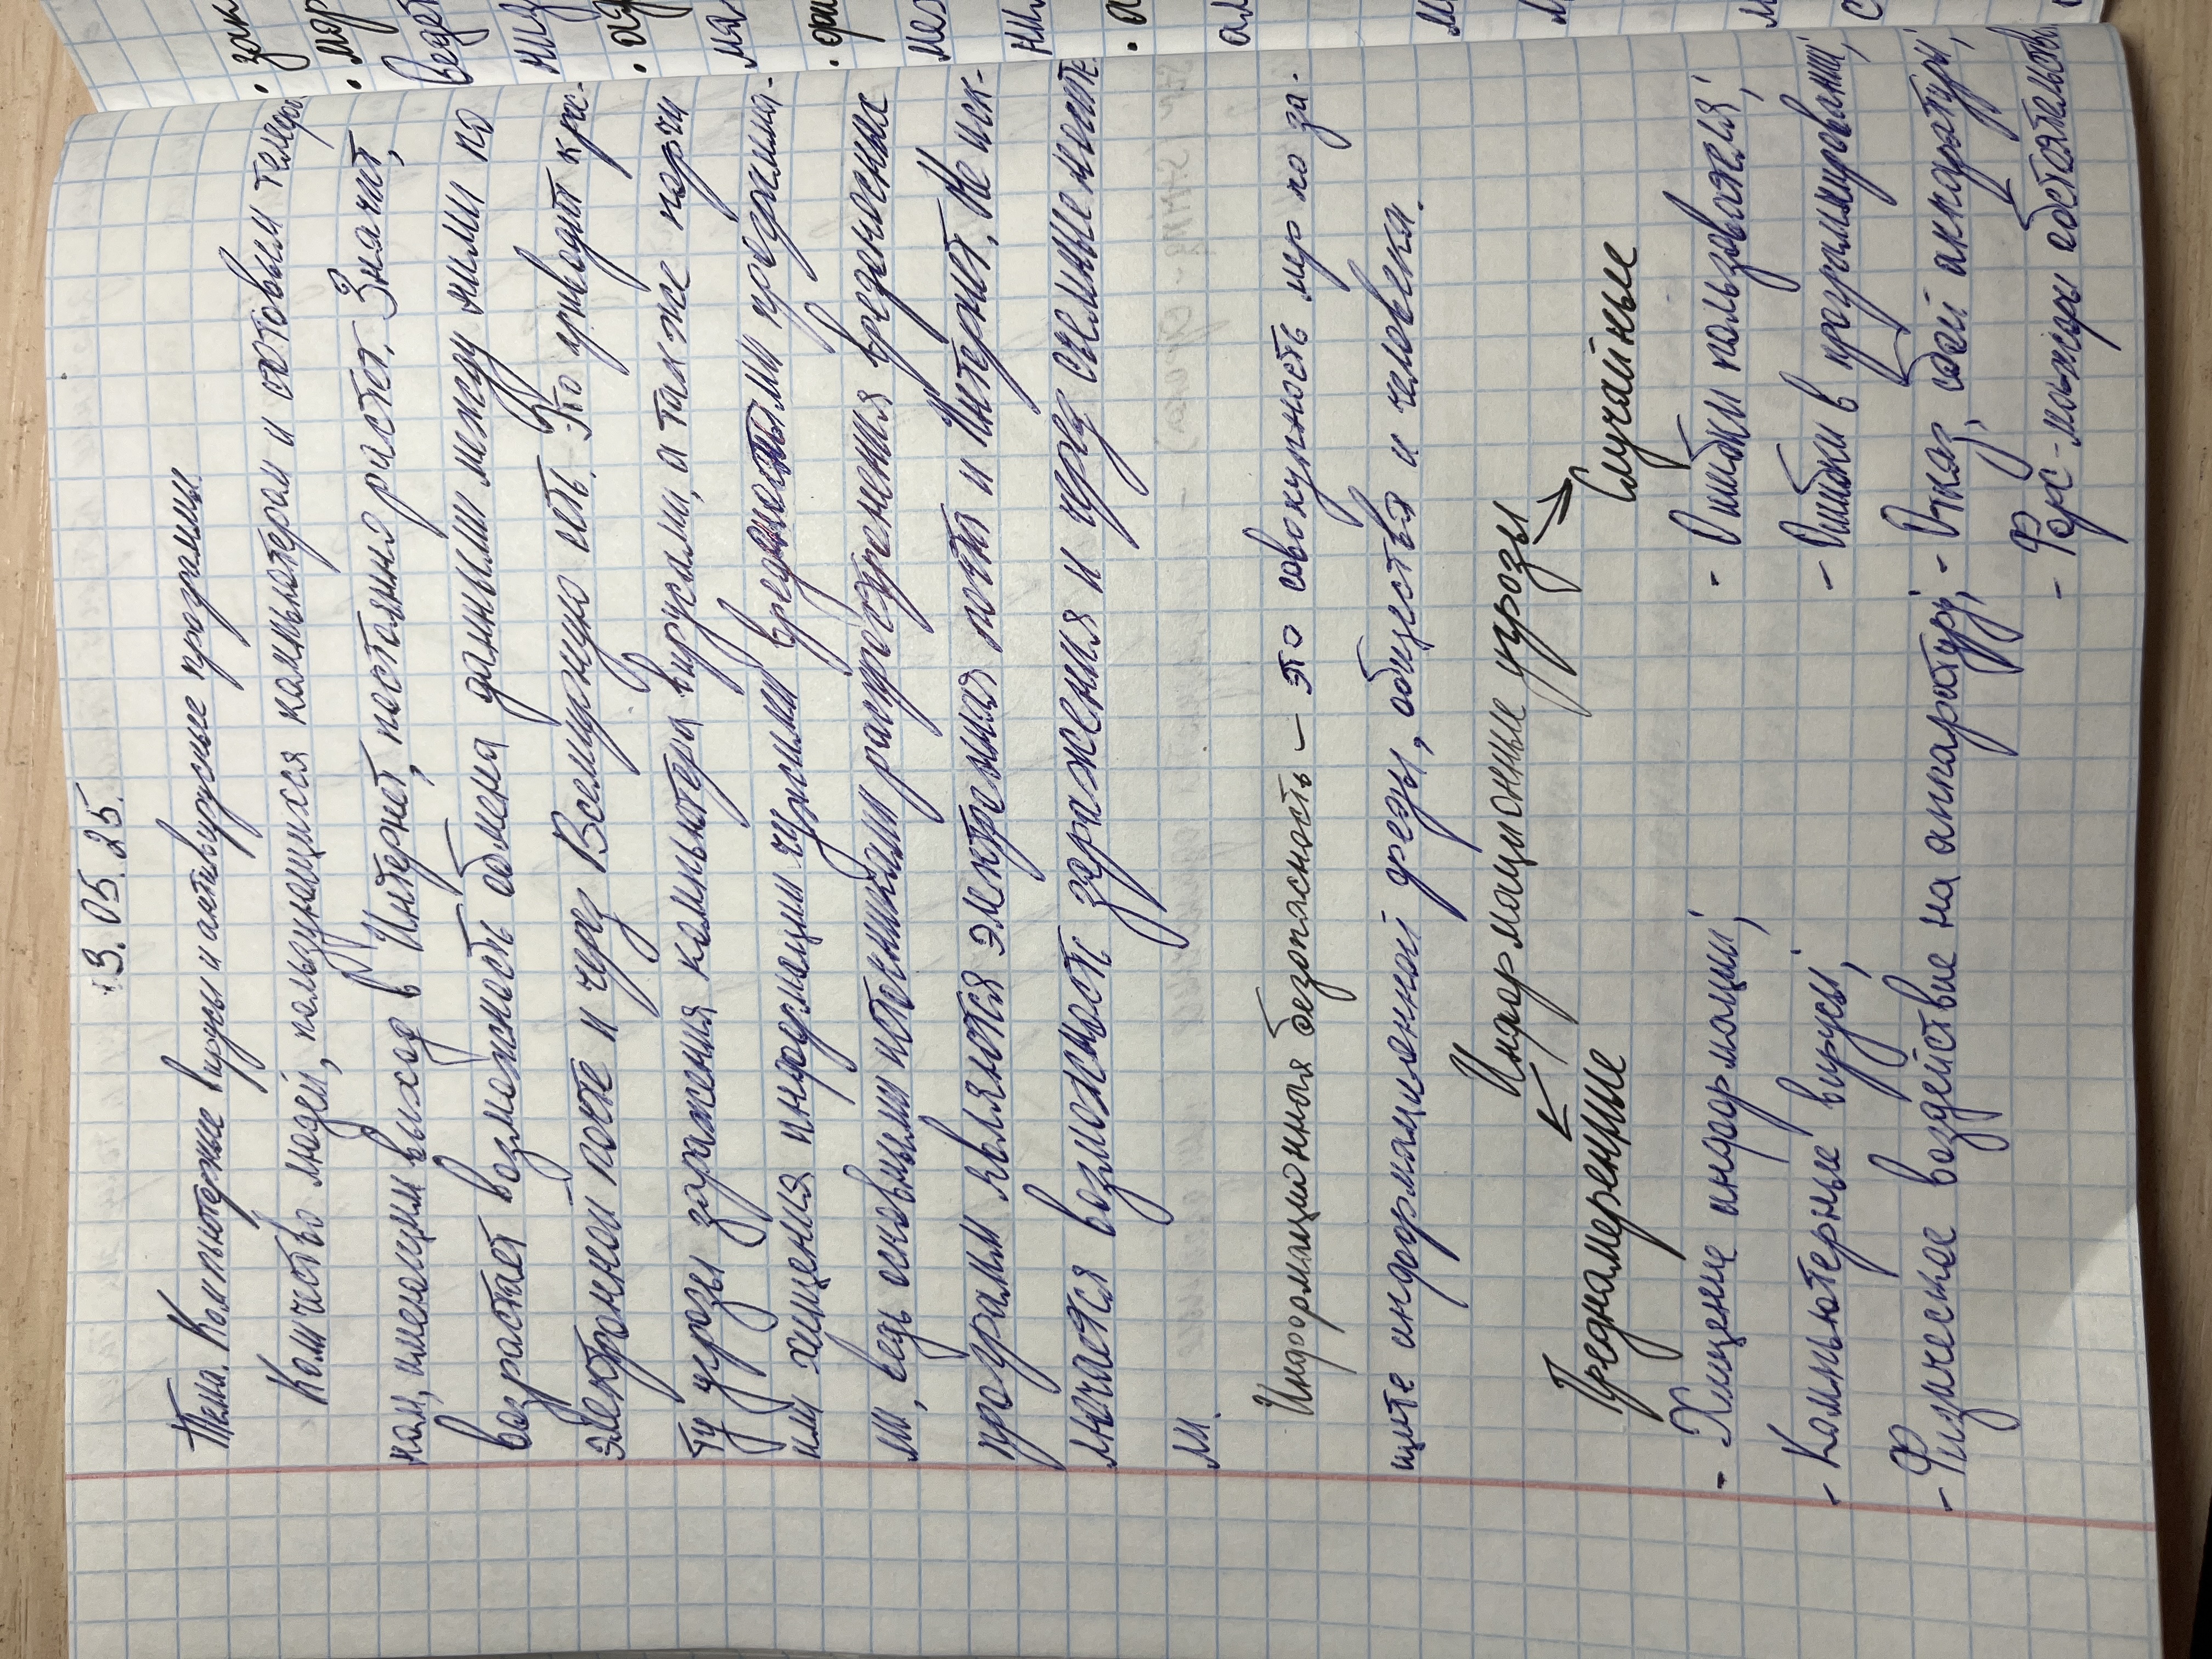 13.05.25.
Тема. Компьютерные вирусы и антивирусные программы.
Количество людей, пользующихся компьютером и сотовым телефо-
ном, имеющим выход в Интернет, постоянно растет. Значит,
возрастает возможность обмена данными между ними по
электронной почте и через Всемирную сеть. Это приводит к рос-
ту угрозы заражения компьютера вирусами, а также порчи
или хищения информации чужими вредоносными программа-
ми, ведь основными источниками распространения вредоносных
программ являются электронная почта и Интернет. Не иск-
лючается возможность заражения и через съемные носите
ли.
Информационная безопасность – это совокупность мер по за-
щите информационной среды, общества и человека.
Информационные угрозы
Преднамеренные Случайные
- Хищение информации; - Ошибки пользователя;
- Компьютерные вирусы; - Ошибки в программировании;
- Физическое воздействие на аппаратуру; - Отказ, сбой аппаратуры;
- Форс-мажоры обстоятельства